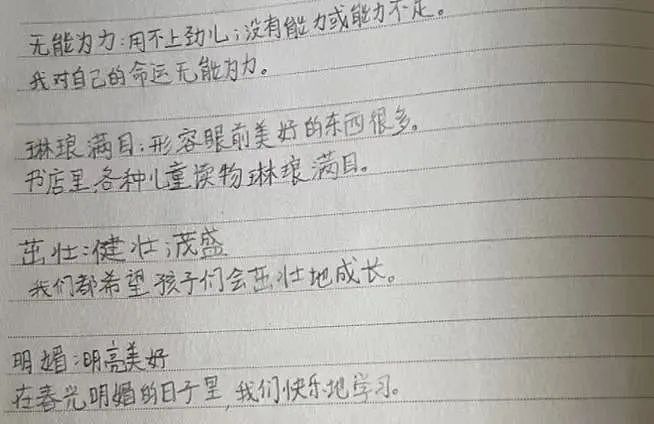 无能为力:用不上劲儿;没有能力或能力不足。
我对自己的命运无能为力。
琳琅满目:形容眼前美好的东西很多。
书店里各种儿童读物琳琅满目。
茁壮:健壮;茂盛
我们都希望孩子们会茁壮地成长。
明媚:明亮美好
在春光明媚的日子里,我们快乐地学习。